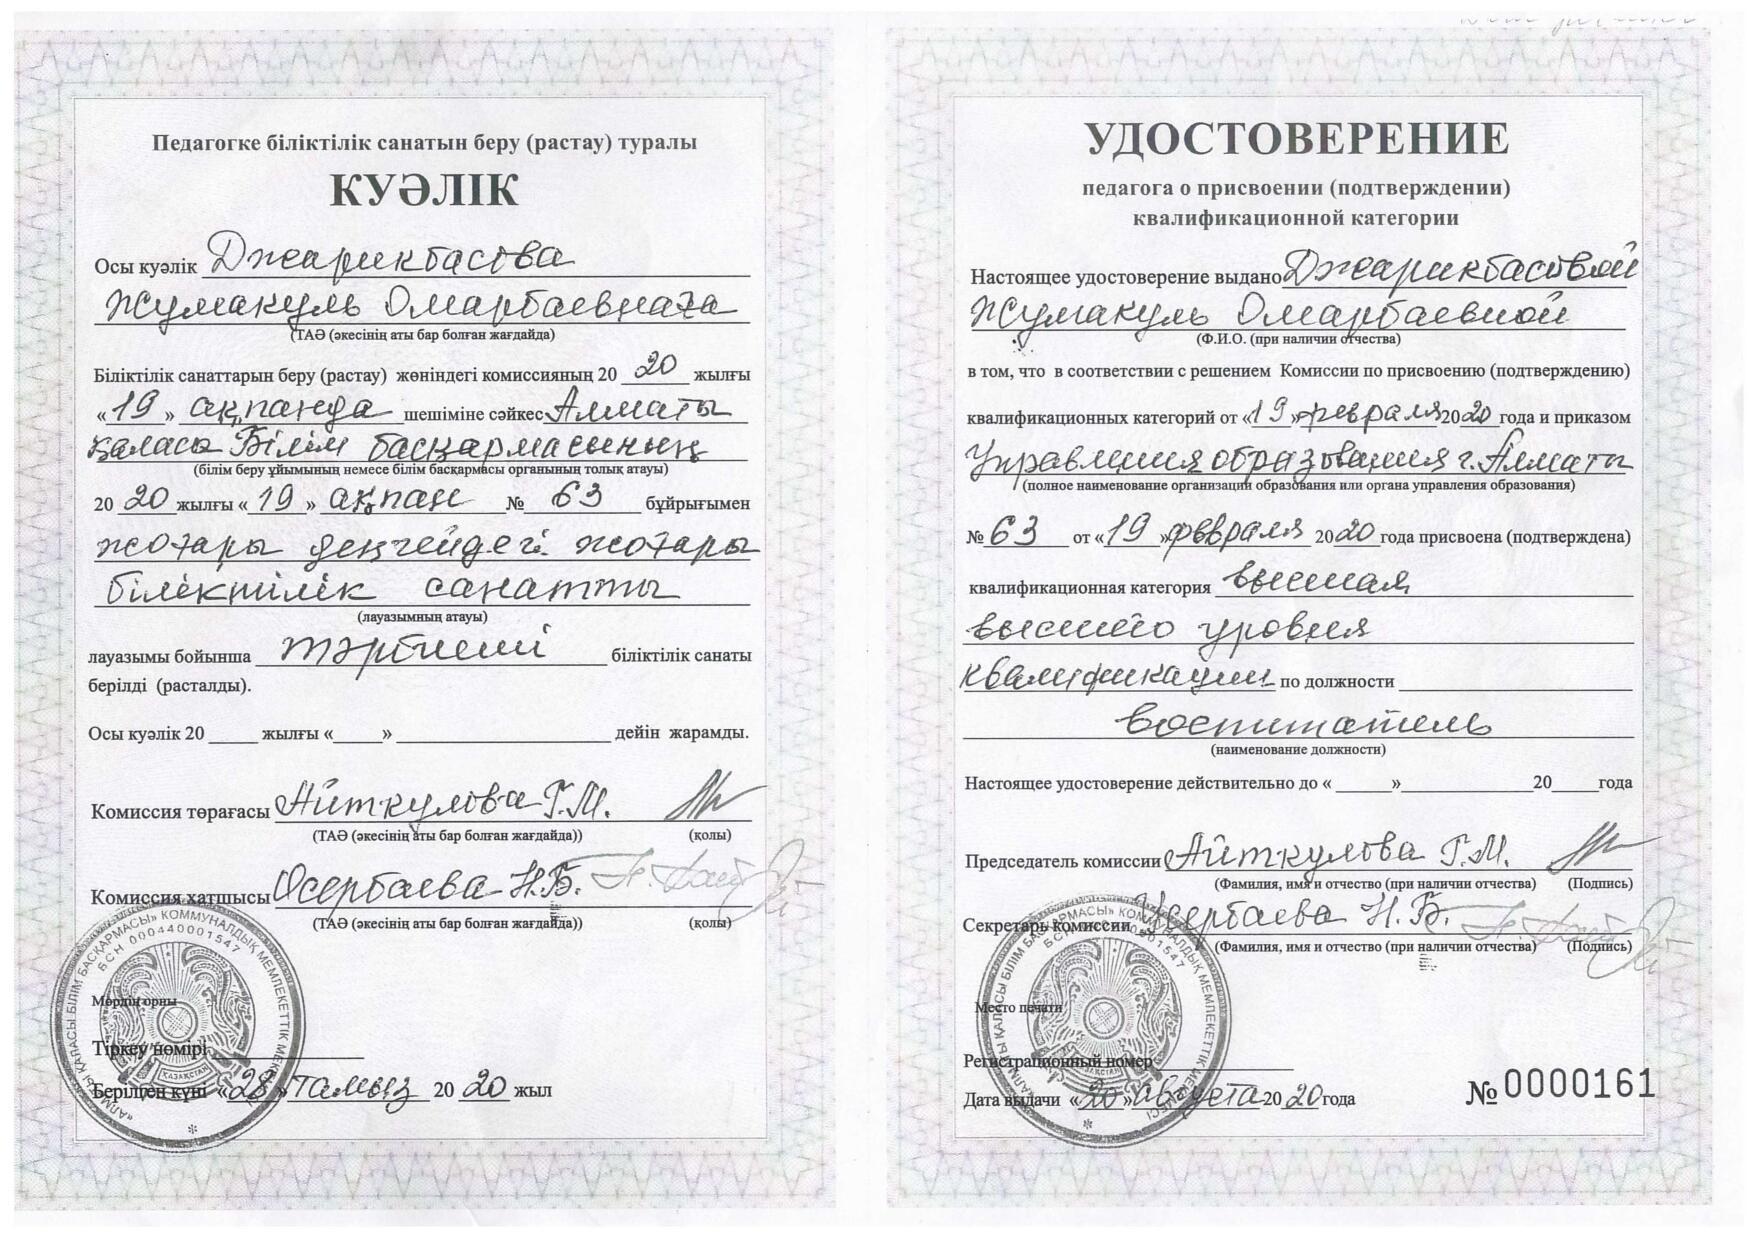 Педагогке біліктілік санатын беру (растау) туралы
КУӘЛІК
Осы куәлік Джарикбасова
Жумакуль Омарбаевнаға
(ТАӘ (әкесінің аты бар болған жағдайда)
Біліктілік санаттарын беру (растау) жөніндегі комиссияның 20 20 жылғы
«19» ақпанда шешіміне сәйкес Алматы
қаласы Білім басқармасының
(білім беру ұйымының немесе білім басқармасы органының толық атауы)
20 20 жылғы «19» ақпан № 63 бұйрығымен
жоғары деңгейдегі жоғары
біліктілік санатты
(лауазымның атауы)
лауазымы бойынша тәрбиеші біліктілік санаты
берілді (расталды).
Осы куәлік 20 _____ жылғы «_____» _____ дейін жарамды.
Комиссия төрағасы Айткулова Г.М.
(ТАӘ (әкесінің аты бар болған жағдайда)) (қолы)
Комиссия хатшысы Осербаева Н.Б.
(ТАӘ (әкесінің аты бар болған жағдайда)) (қолы)
«АЛМАТЫ ҚАЛАСЫ БІЛІМ БАСҚАРМАСЫ» КОММУНАЛДЫҚ МЕМЛЕКЕТТІК МЕКЕМЕСІ
БСН 000440001547
ҚАЗАҚСТАН
Мөрдің орны
Тіркеу нөмірі
Берілген күні «28» тамыз 20 20 жыл
УДОСТОВЕРЕНИЕ
педагога о присвоении (подтверждении)
квалификационной категории
Настоящее удостоверение выдано Джарикбасовой
Жумакуль Омарбаевной
(Ф.И.О. (при наличии отчества)
в том, что в соответствии с решением Комиссии по присвоению (подтверждению)
квалификационных категорий от «19» февраля 2020 года и приказом
Управления образования г. Алматы
(полное наименование организации образования или органа управления образования)
№ 63 от «19» февраля 2020 года присвоена (подтверждена)
квалификационная категория высшая
высшего уровня
квалификации по должности
воспитатель
(наименование должности)
Настоящее удостоверение действительно до «_____»_____20_____года
Председатель комиссии Айткулова Г.М.
(Фамилия, имя и отчество (при наличии отчества) (Подпись)
Секретарь комиссии Осербаева Н.Б.
(Фамилия, имя и отчество (при наличии отчества) (Подпись)
«АЛМАТЫ ҚАЛАСЫ БІЛІМ БАСҚАРМАСЫ» КОММУНАЛДЫҚ МЕМЛЕКЕТТІК МЕКЕМЕСІ
ҚАЗАҚСТАН
Место печати
Регистрационный номер
Дата выдачи «20» августа 2020 года
№ 0000161